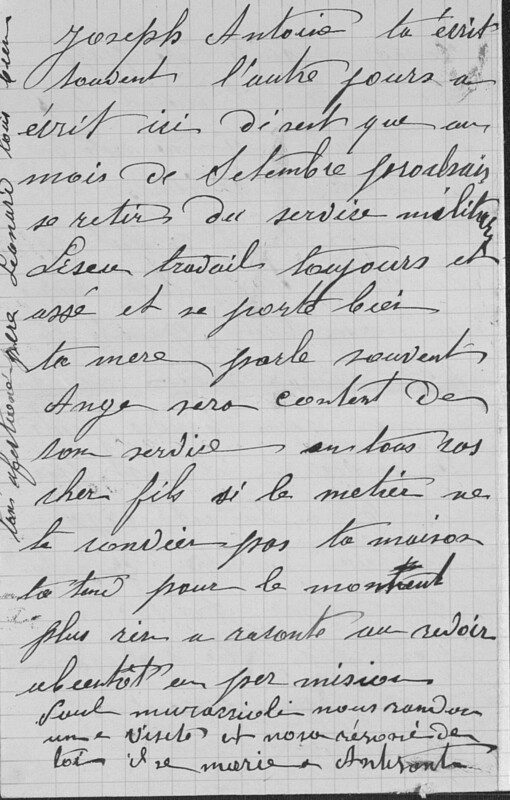 Joseph Antoine ta écrit
souvent l'autre jours a
écrit ici disent que au
mois de Setembre prochain
se retire du service militaire
travail toujours et
assé et se porte bien
ta mere parle souvent
Ange sera content de
son service en tous cas
cher fils si le metier ne
te convien pas ta maison
ta tend pour le moment
plus rien a raconte au revoir
abientôt en per mision
Paul nous randu
une visite et nous de
toi il se marie a
ton afectioné pere Leonard tous bien